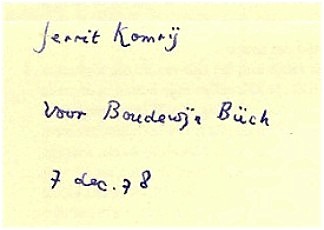 Gerrit Komrij
Voor Boudewijn Büch
7 dec. 78